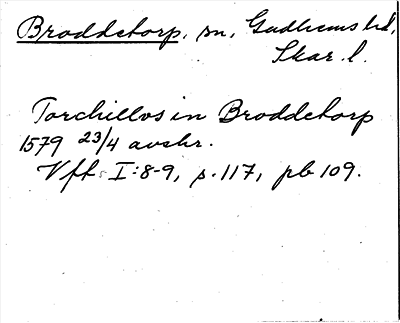 Broddetorp, sn, Gudhems hd,
Skar. l.
Torchillos in Broddetorp
1579 23/4 avskr.
Vfft I:8-9, s. 117, pb 109.